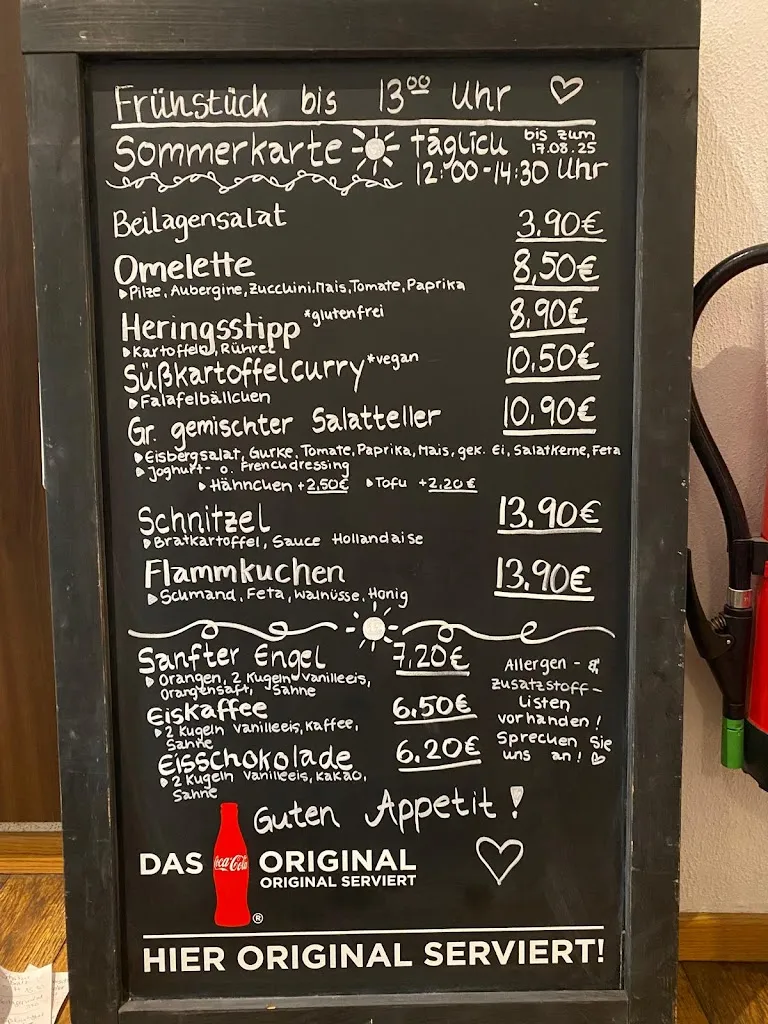 Frühstück bis 13⁰⁰ Uhr ♡
Sommerkarte täglich bis zum 17.08.25
12:00-14:30 Uhr
Beilagensalat 3.90€
Omelette 8,50€
▸Pilze, Aubergine, Zucchini, Mais, Tomate, Paprika
Heringsstipp *glutenfrei 8.90€
▸Kartoffeln, Rührei
Süßkartoffelcurry *vegan 10.50€
▸Falafelbällchen
Gr. gemischter Salatteller 10.90€
▸Eisbergsalat, Gurke, Tomate, Paprika, Mais, gek. Ei, Salatkerne, Feta
▸Joghurt- o. Frenchdressing
▸Hähnchen +2,50€ ▸Tofu +2,20€
Schnitzel 13.90€
▸Bratkartoffel, Sauce Hollandaise
Flammkuchen 13.90€
▸Schmand, Feta, Walnüsse, Honig
Sanfter Engel 7.20€
▸Orangen, 2 Kugeln Vanilleeis,
Orangensaft, Sahne
Eiskaffee 6.50€
▸2 Kugeln Vanilleeis, Kaffee,
Sahne
Eisschokolade 6.20€
▸2 Kugeln Vanilleeis, Kakao,
Sahne
Allergen- &
Zusatzstoff-
Listen
vorhanden!
Sprechen Sie
uns an! ♡
Guten Appetit!
DAS Coca-Cola ORIGINAL
ORIGINAL SERVIERT
®
HIER ORIGINAL SERVIERT!